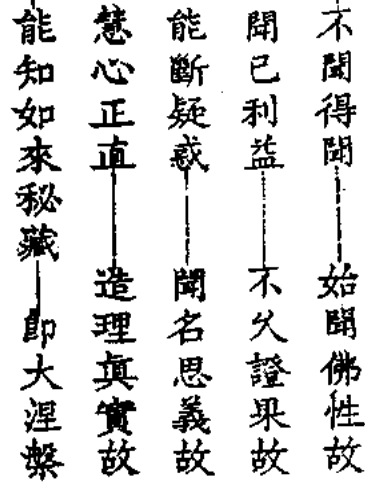 不聞得聞——始聞佛性故
聞已利益——不久證果故
能斷疑惑——聞名思義故
慧心正直——造理真實故
能知如來秘藏——即大涅槃